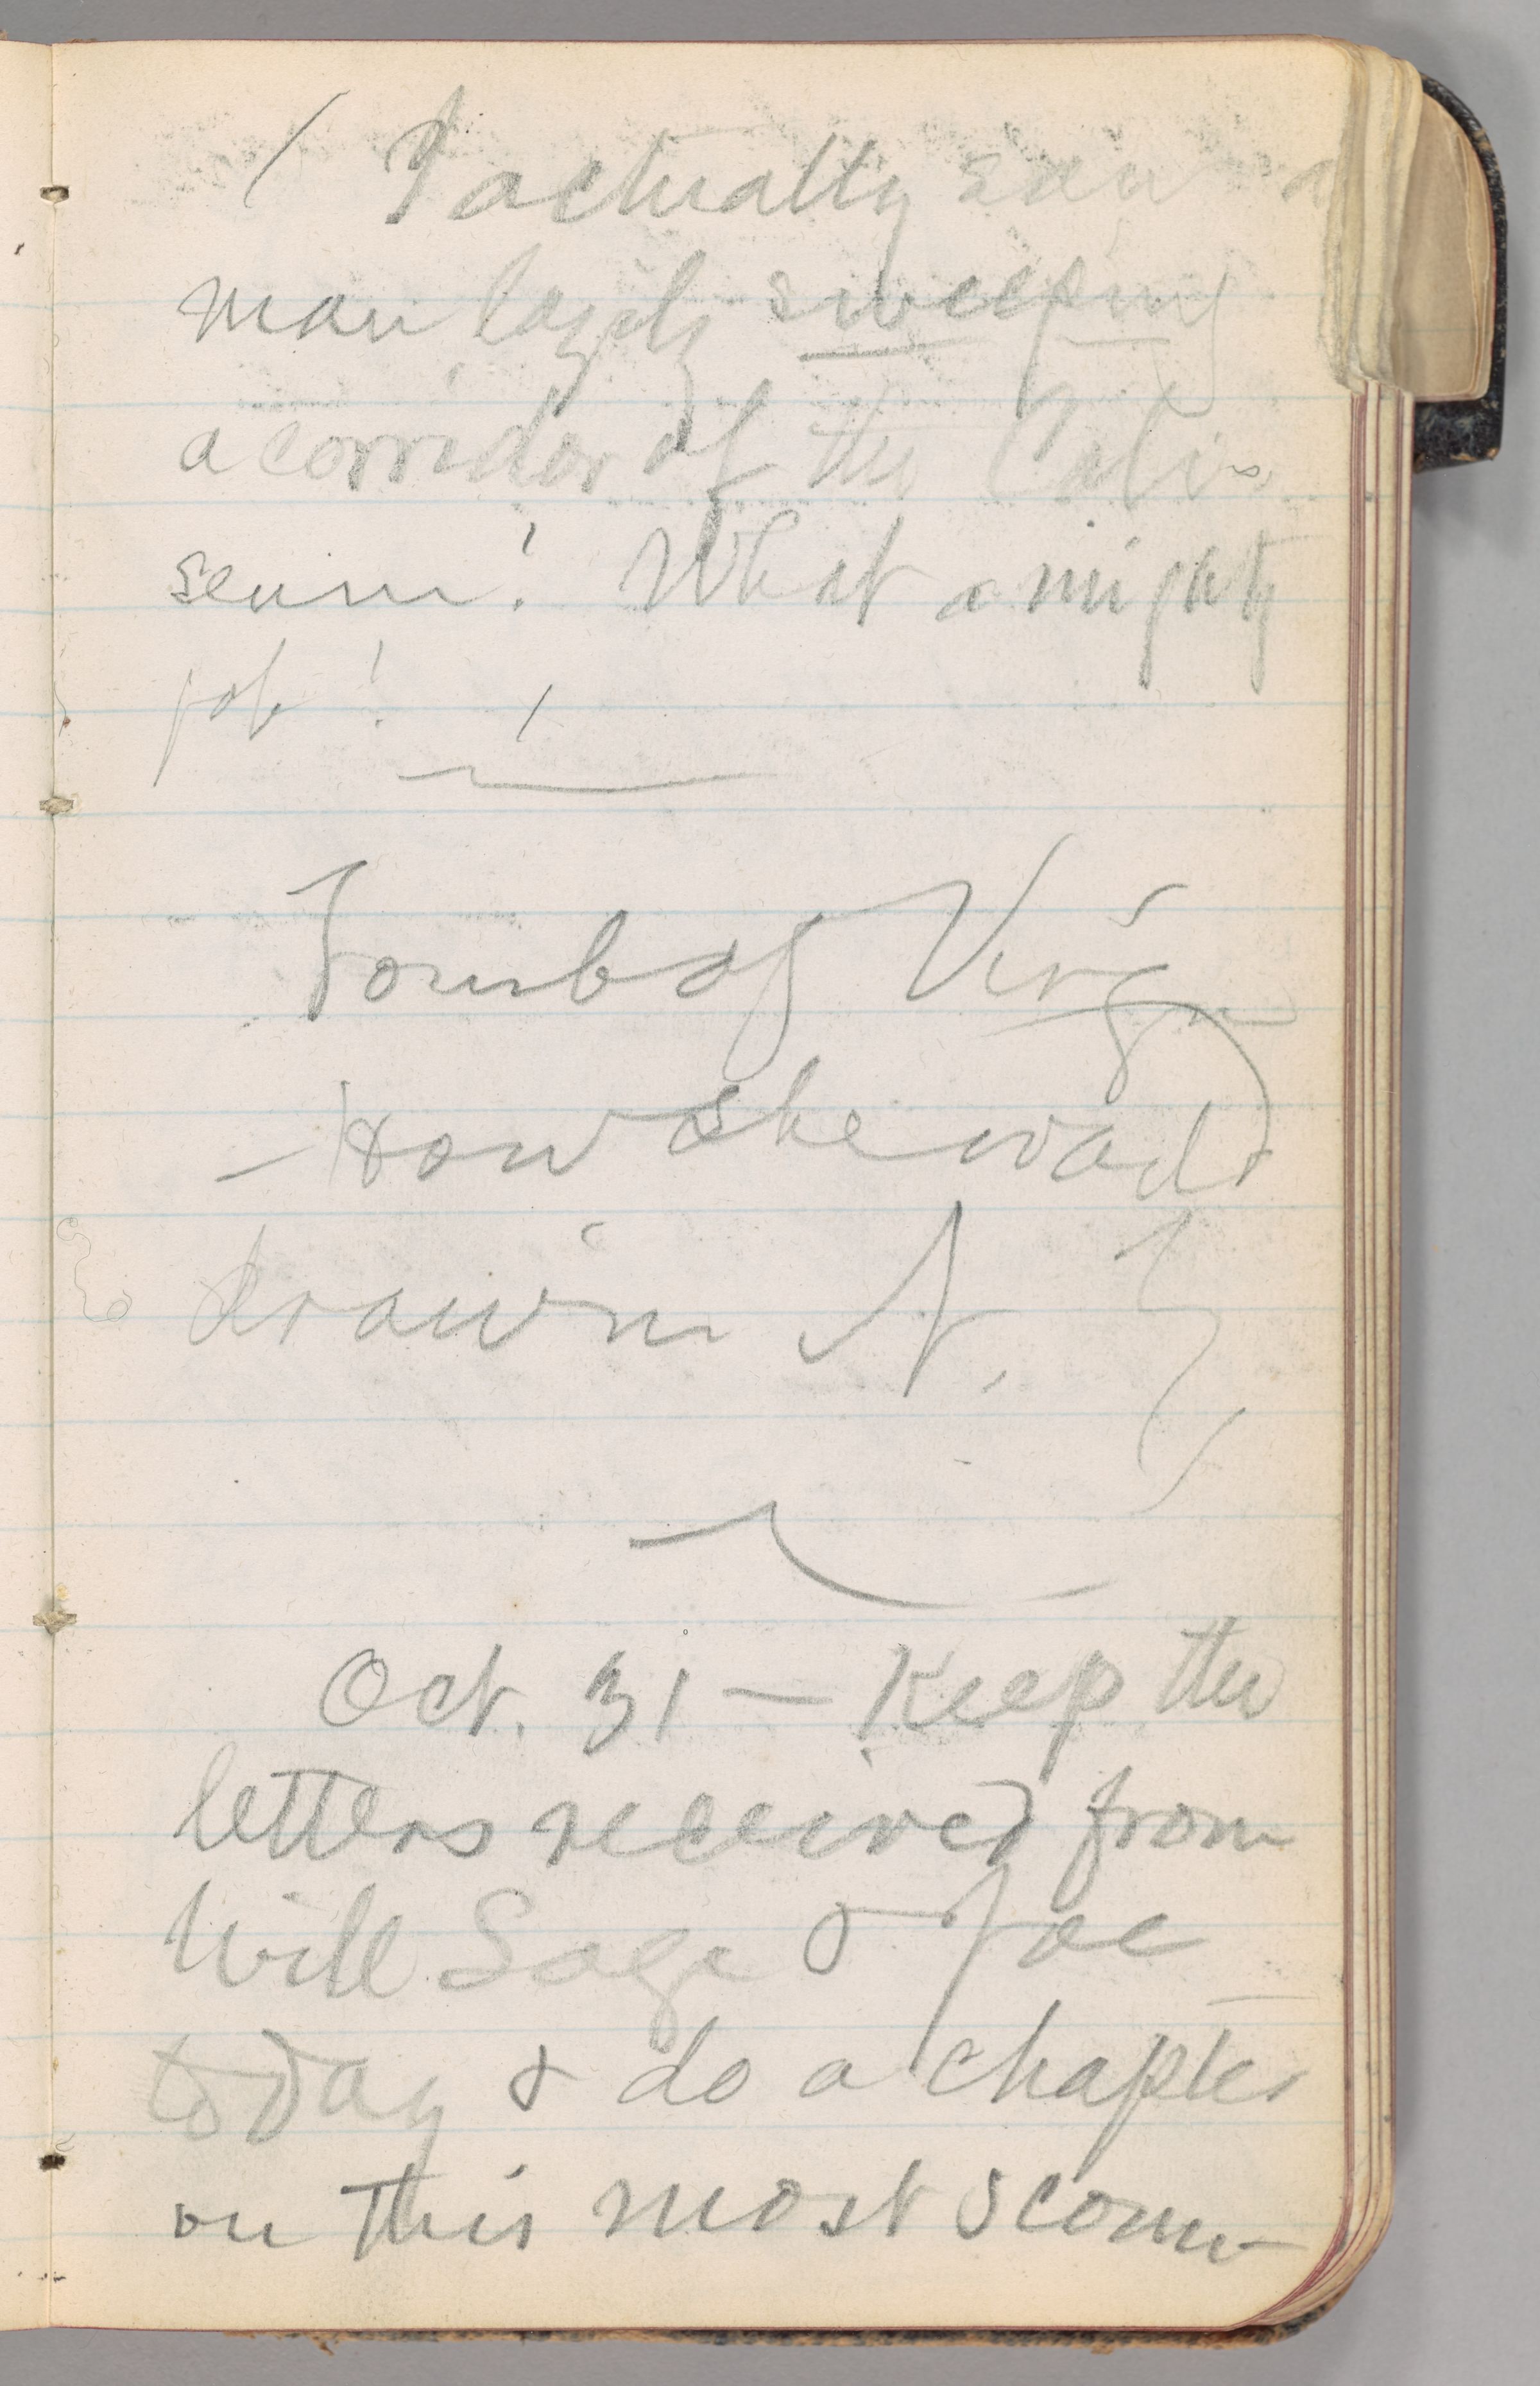 ( I actually saw a
man lazily sweeping
a corridor of the Coli-
seum! What a mighty
job!
Tomb of Virgin
— How she was
drawn in it.
Oct. 31 — Keep the
letters received from
Will Sage & Joe
today & do a chapter
on this most scoun-